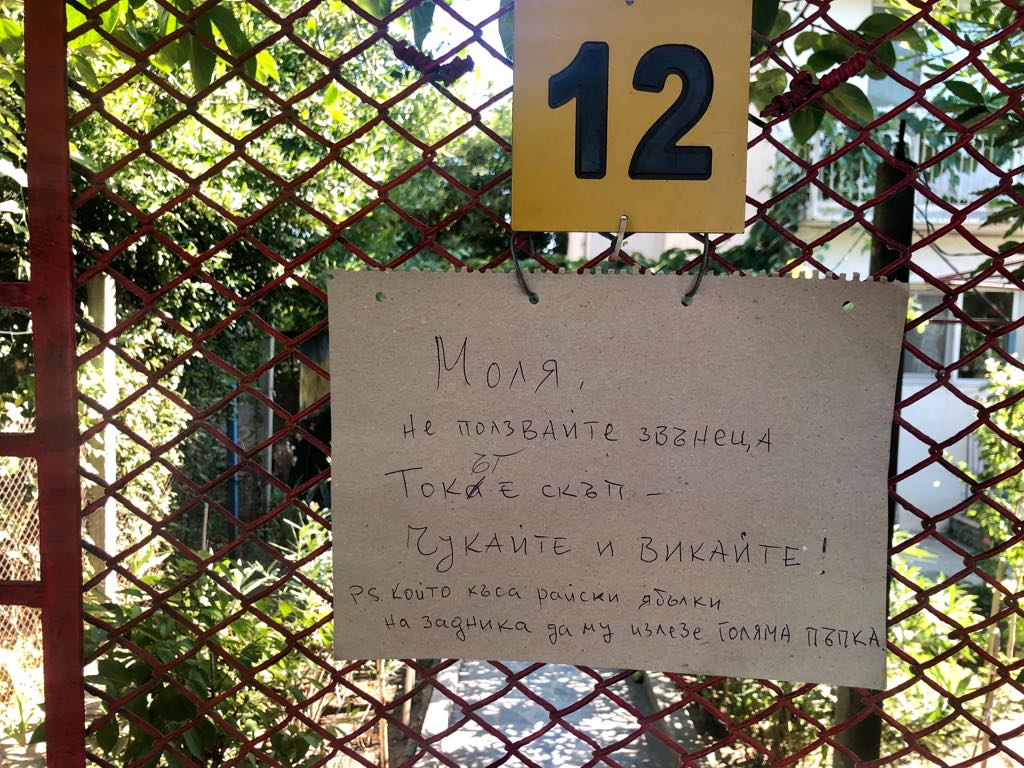 12
Моля,
не ползвайте звънеца
Токът е скъп –
Чукайте и викайте!
P.S. Който къса райски ябълки
на задника да му излезе голяма пъпка.